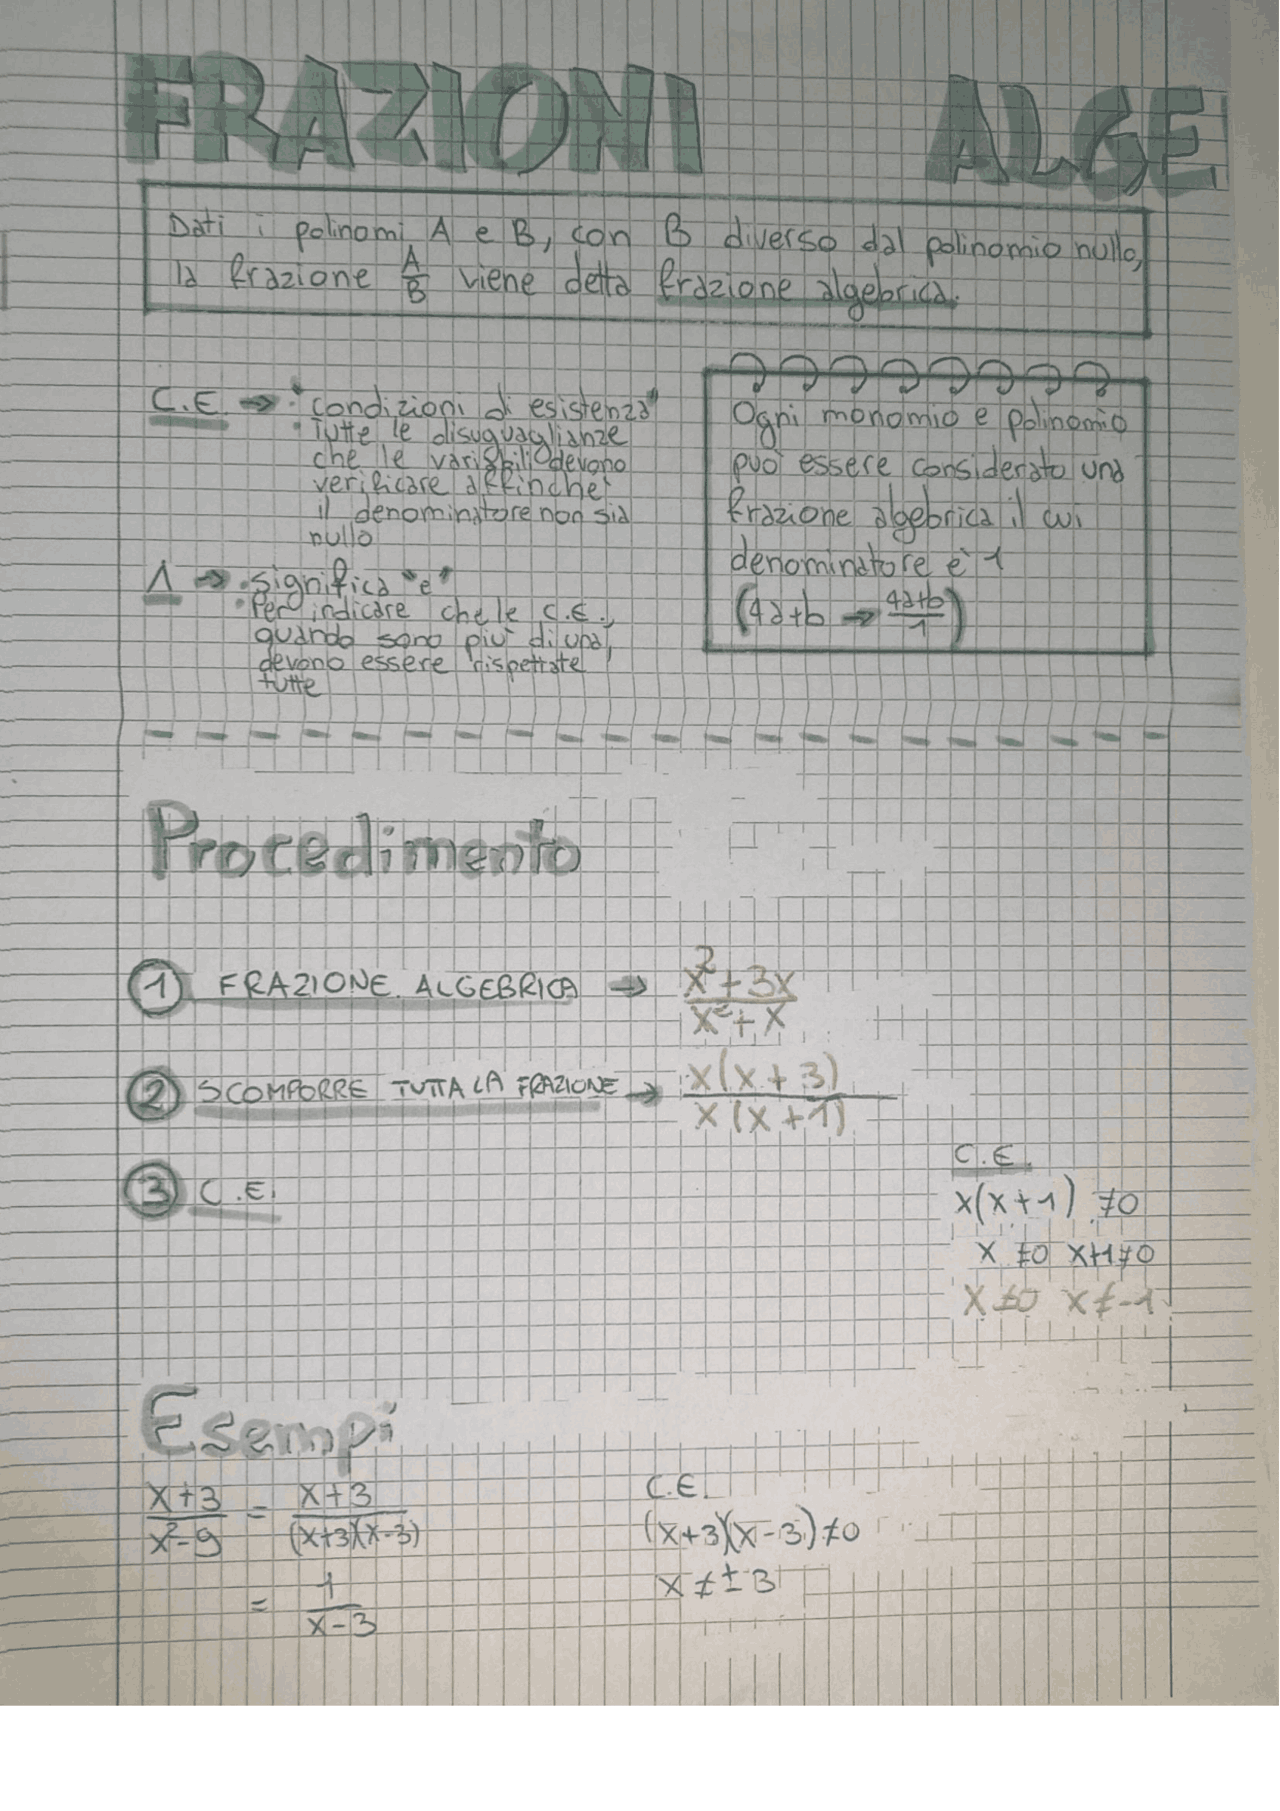 FRAZIONI ALGE
Dati i polinomi A e B, con B diverso dal polinomio nullo,
la frazione A/B viene detta frazione algebrica.
C.E. → • "condizioni di esistenza"
• Tutte le disuguaglianze
che le variabili devono
verificare affinché
il denominatore non sia
nullo
Λ → • significa "e"
• Per indicare che le C.E.,
quando sono più di una,
devono essere rispettate
tutte
Ogni monomio e polinomio
può essere considerato una
frazione algebrica il cui
denominatore è 1
(4a+b → 4a+b/1)
Procedimento
1 FRAZIONE ALGEBRICA → x²+3x/x²+x
2 SCOMPORRE TUTTA LA FRAZIONE → x(x+3)/x(x+1)
3 C.E.
C.E.
x(x+1) ≠0
x ≠0 x+1≠0
x ≠0 x ≠-1
Esempi
x+3/x²-9 = x+3/(x+3)(x-3)
= 1/x-3
C.E.
(x+3)(x-3)≠0
x ≠ ± 3